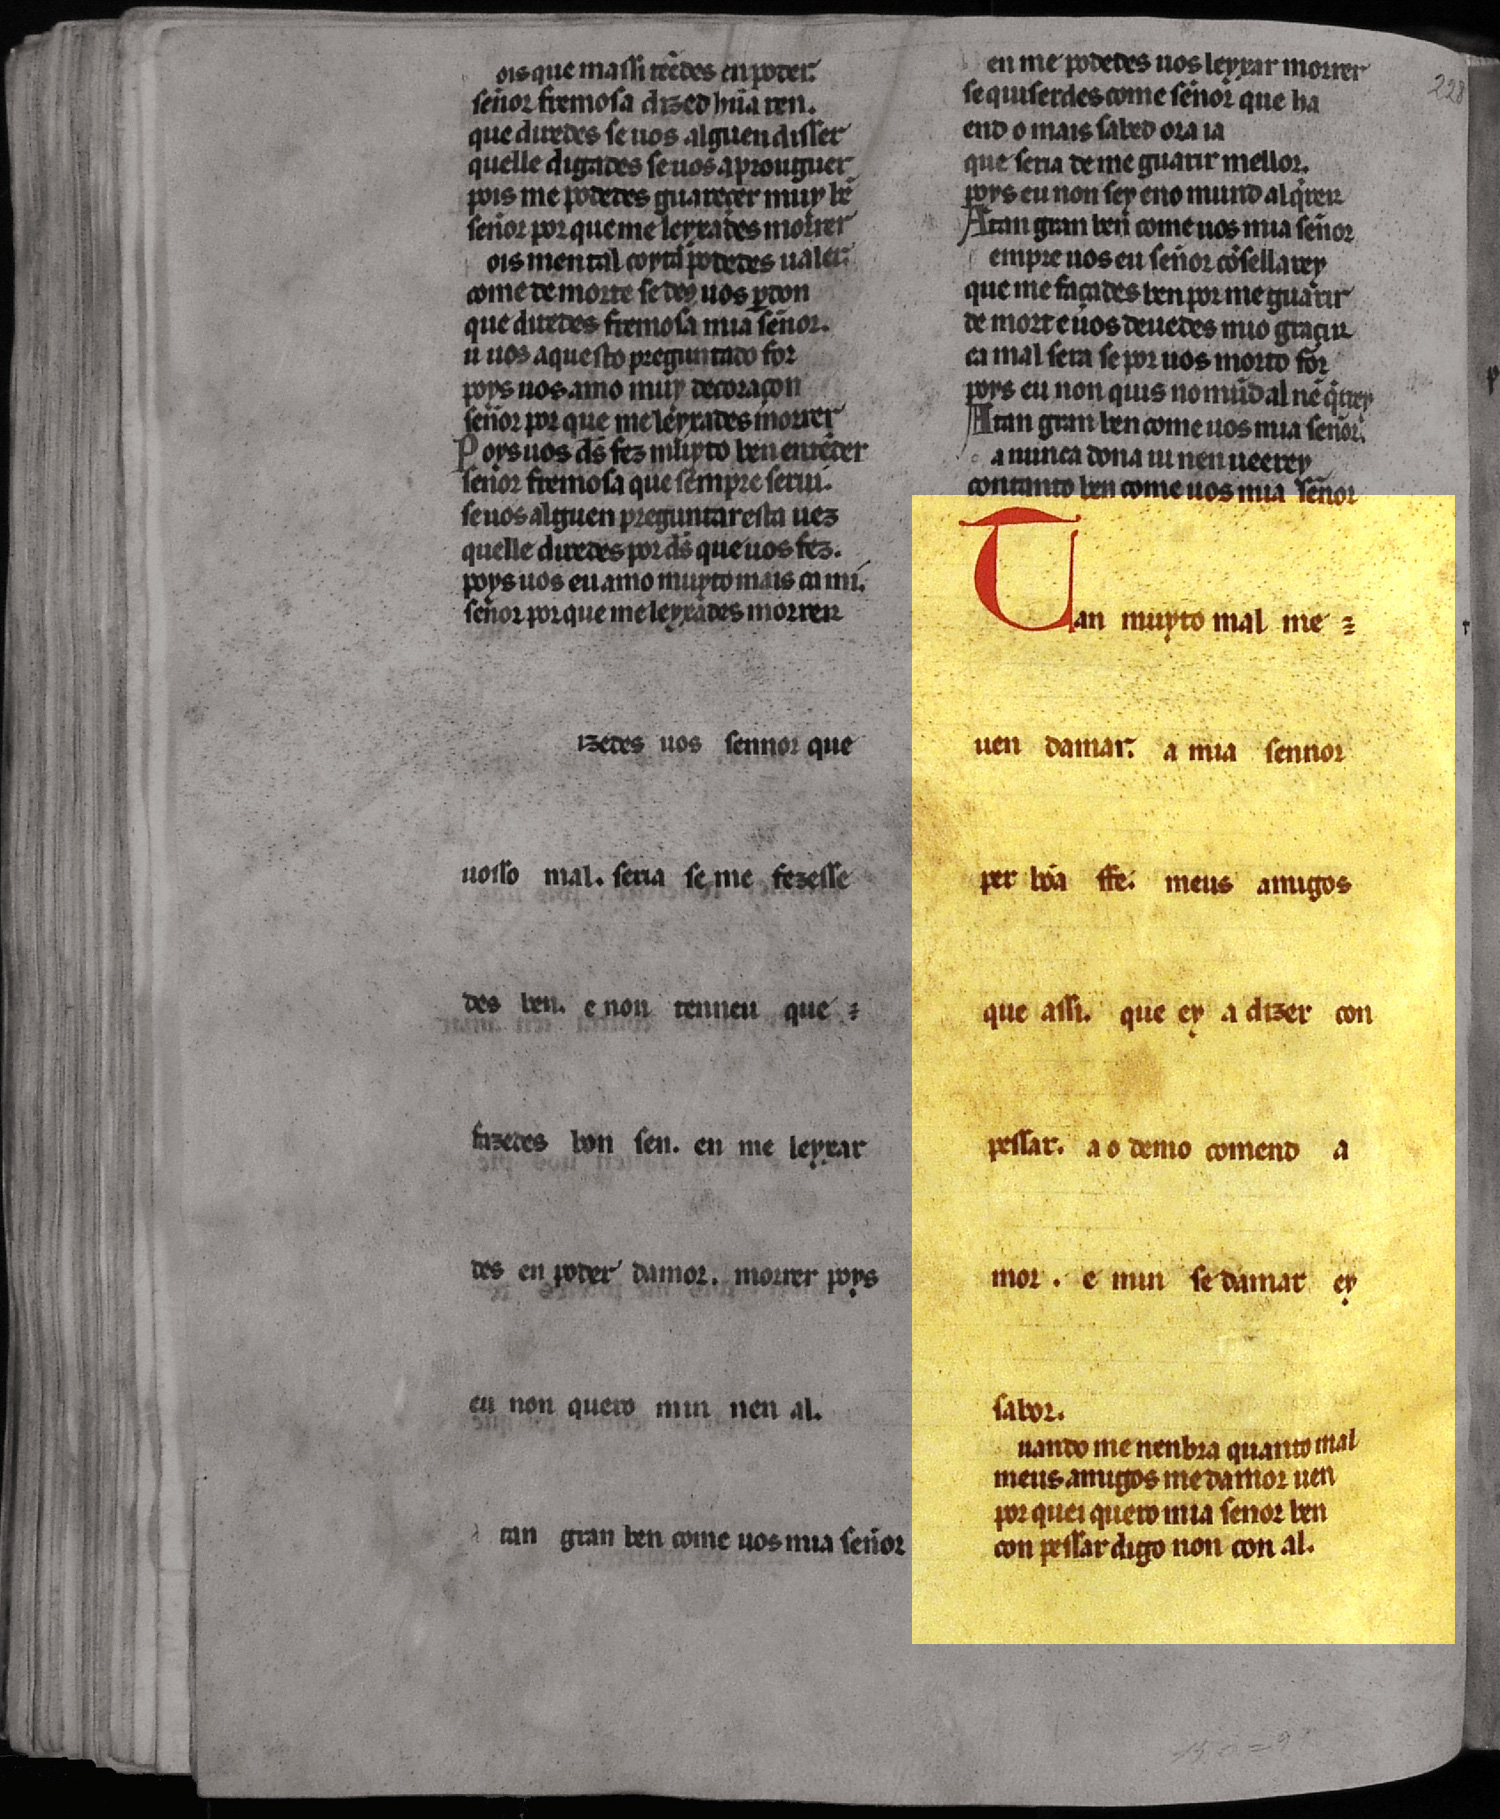 ois que massi tẽedes en poder.
señor fremosa dized hũa ren.
que diredes se uos alguen disser
quelle digades se uos aprouguer
pois me podedes guareçer muy bẽ
señor por que me leyxades morrer
ois men tal coyta podedes ualer.
come de morte se dey uos perdon
que diredes fremosa mia señor.
u uos aquesto preguntado for
poys uos amo muy de coraçon
señor por que me leyxades morrer
Poys uos ds̃ fez muyto ben entẽder
señor fremosa que sempre serui.
se uos alguen preguntar esta uez
quelle diredes por ds̃ que uos fez.
poys uos eu amo muyto mais ca mi.
señor por que me leyxades morrer
izedes uos sennor que
uosso mal. seria se me fezesse
des ben. e non tenneu que
fazedes bon sen. en me leyxar
des en poder damor. morrer poys
eu non quero min nen al.
tan gran ben come uos mia señor
en me podedes uos leyxar morrer
se quiserdes come señor que ha
end o mais sabed ora ia
que seria de me guarir mellor.
poys eu non sey eno mund al q̃rer
A tan gran ben come uos mia señor
empre uos eu señor cõsellarey
que me façades ben por me guarir
de mort e uos deuedes mio graçir
ca mal sera se por uos morto for
poys eu non quis no mũd al nẽ q̃rrey
A tan gran ben come uos mia señor.
a nunca dona ui nen ueerey
con tanto ben come uos mia señor
228
Tan muyto mal me
uen damar. a mia sennor
per bõa ffe. meus amigos
que assi. que ey a dizer con
pessar. a o demo comend a
mor. e min se damar ey
sabor.
uando me nenbra quanto mal
meus amigos me damor uen
por quei quero mia senor ben
con pessar digo non con al.